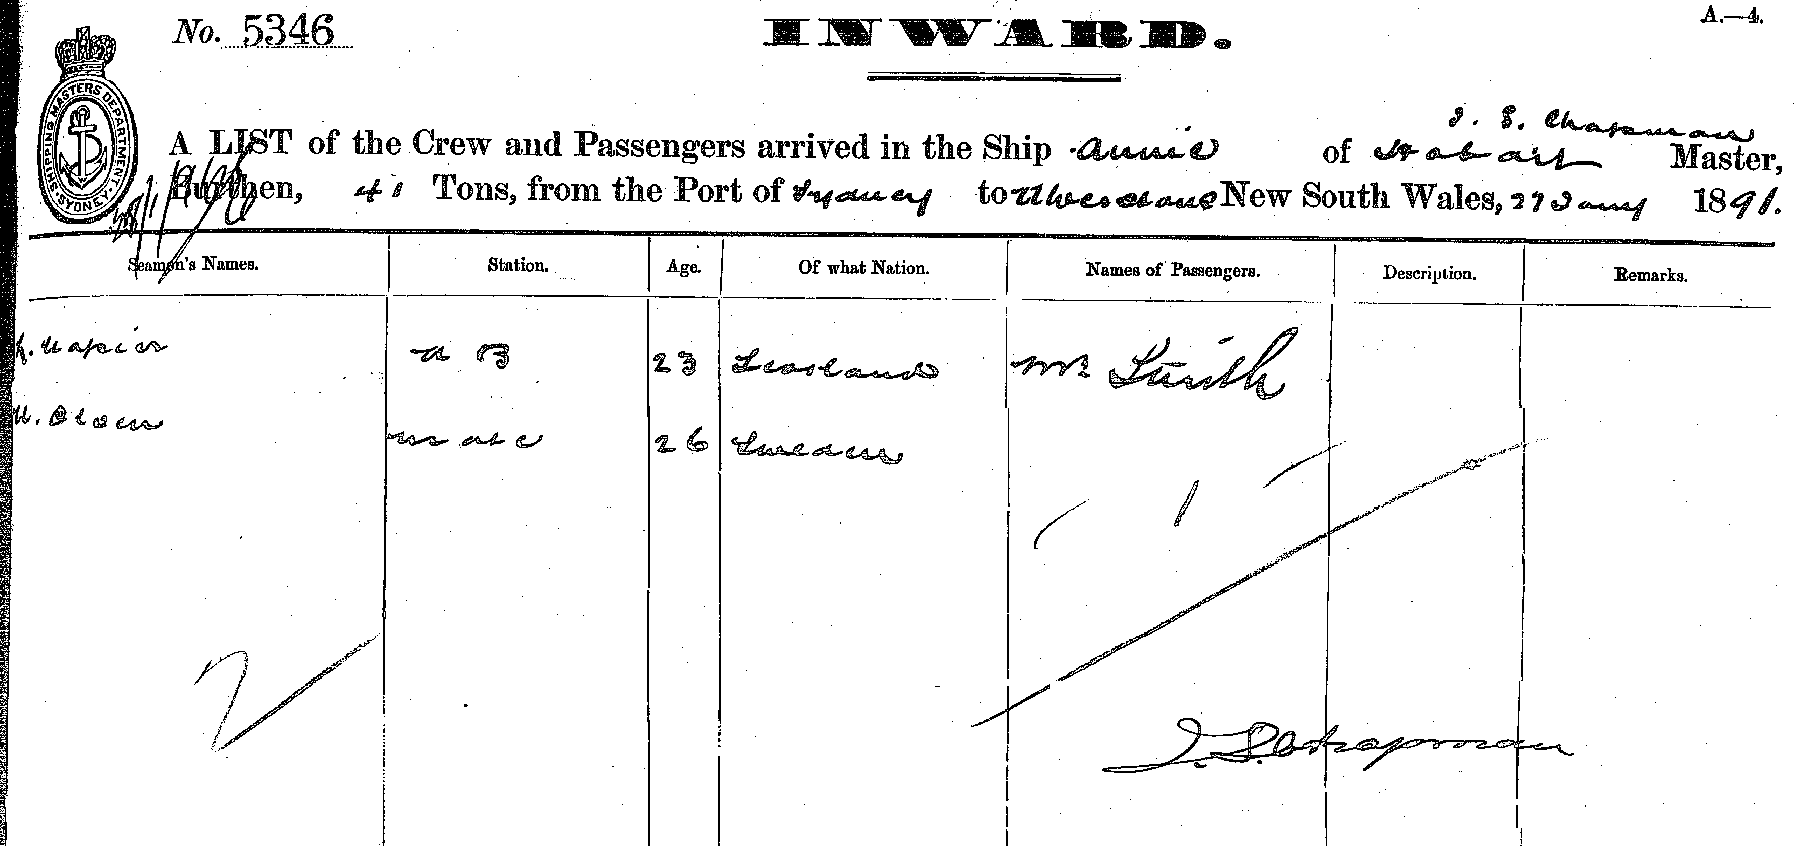 No. 5346
INWARD.
A.—4.
SHIPPING MASTERS DEPARTMENT. SYDNEY.
J. S. Chapman
A LIST of the Crew and Passengers arrived in the Ship Annie of Hobart Master,
Burthen, 41 Tons, from the Port of Sydney to New South Wales, 27 Jany 1891.
Seamen's Names. Station. Age. Of what Nation. Names of Passengers. Description. Remarks.
Napier A B 23 Scotland Mr Smith
Olsen Mate 26 Sweden
1
2
J. S. Chapman